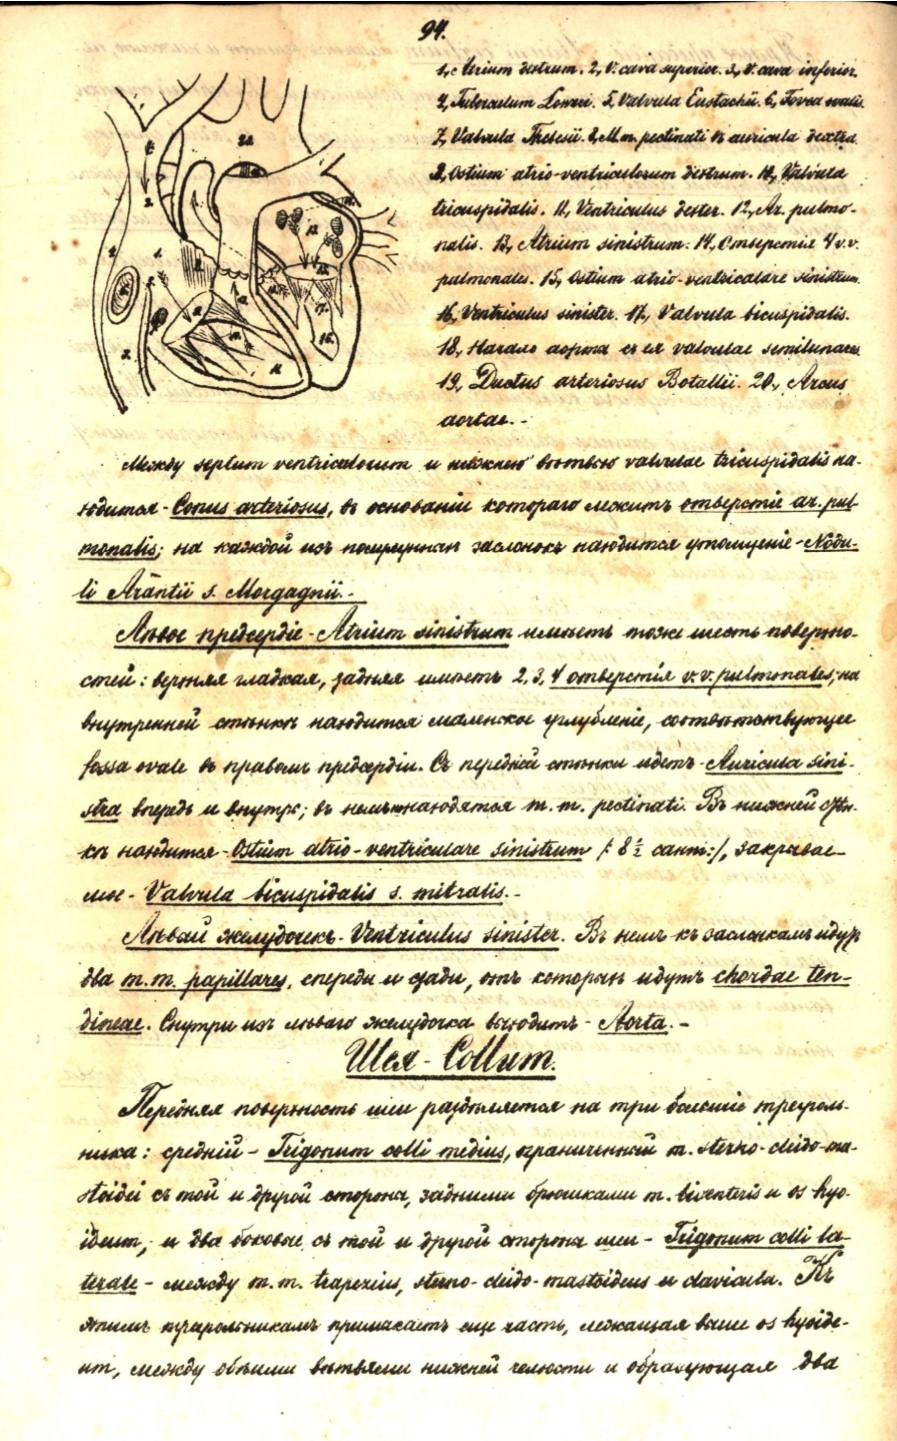 94.
1, Atrium dextrum. 2, V. cava superior. 3, V. cava inferior.
4, Tuberculum Loweri. 5, Valvula Eustachii. 6, Fovea ovalis.
7, Valvula Thebesii. 8, M.m. pectinati въ auricula dextra.
9, Ostium atrio-ventriculosum dextrum. 10, Valvula
tricuspidalis. 11, Ventriculus dexter. 12, Ar. pulmo-
nalis. 13, Atrium sinistrum. 14, Отверстія 4 v.v.
pulmonales. 15, Ostium atrio-ventriculare sinistrum.
16, Ventriculus sinister. 17, Valvula bicuspidalis.
18, Начало аорты съ ея valvulae semilunares.
19, Ductus arteriosus Botallii. 20, Arcus
aortae. -
Между septum ventriculorum и нижнею вѣтвью valvulae tricuspidalis на-
ходится - Conus arteriosus, въ основаніи котораго лежитъ отверстіе ar. pul-
monalis; на каждой изъ полулунныхъ заслонокъ находится утолщеніе - Nodu-
li Arantii s. Morgagnii. -
Лѣвое предсердіе - Atrium sinistrum имѣетъ тоже шесть поверхно-
стей: верхняя гладкая, задняя имѣетъ 2, 3, 4 отверстія v.v. pulmonales; на
внутренней стѣнкѣ находится маленькое углубленіе, соотвѣтствующее
fossa ovale въ правомъ предсердіи. Съ передней стѣнки идетъ - Auricula sini-
stra впередъ и внутрь; въ немъ находятся m. m. pectinati. Въ нижней стѣн-
кѣ находится - Ostium atrio-ventriculare sinistrum /: 8 ½ сант :/, закрывае-
мое - Valvula bicuspidalis s. mitralis. -
Лѣвый желудочекъ - Ventriculus sinister. Въ немъ къ заслонкамъ идутъ
два m. m. papillares, спереди и сзади, отъ которыхъ идутъ chordae ten-
dineae. Снутри изъ лѣваго желудочка выходитъ - Aorta. -
Шея - Collum.
Передняя поверхность шеи раздѣляется на три большіе треуголь-
ника: средній - Trigonum colli medius, ограниченный m. sterno-cleido-ma-
stoidei съ той и другой стороны, задними брюшками m. biventeris и os hyo-
ideum, и два боковые съ той и другой стороны шеи - Trigonum colli la-
terale - между m. m. trapezius, sterno-cleido-mastoideus и clavicula. Къ
этимъ треугольникамъ примыкаетъ еще часть, лежащая выше os hyoide-
um, между обѣими вѣтвями нижней челюсти и образующая два